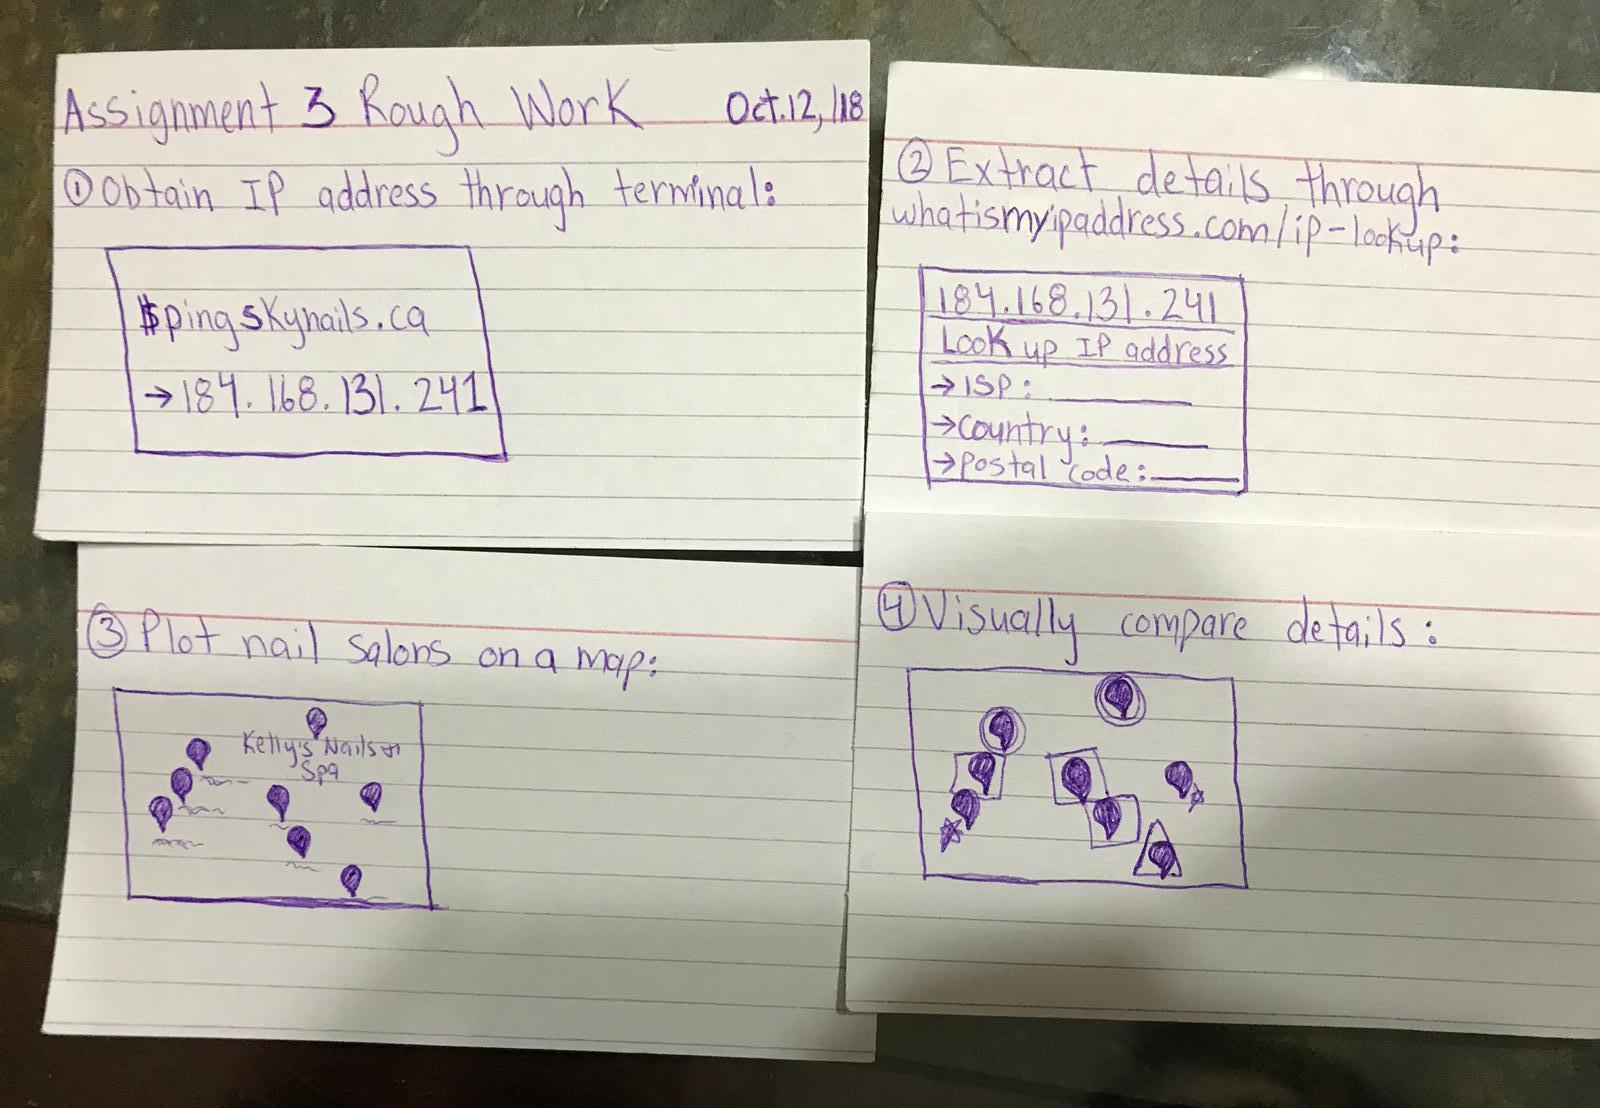 Assignment 3 Rough Work Oct.12,/18
① Obtain IP address through terminal:
$ping skynails.ca
→184.168.131.241
② Extract details through
whatismyipaddress.com/ip-lookup:
184.168.131.241
Look up IP address
→ISP:
→Country:
→Postal code:
③ Plot nail salons on a map:
Kelly's Nails &
Spa
④ Visually compare details: